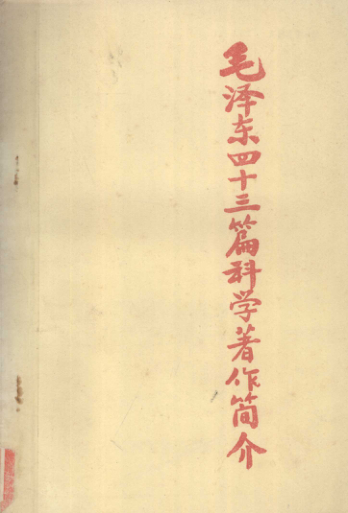 毛泽东四十三篇科学著作简介